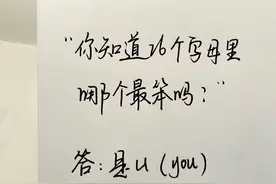 “你知道26个字母里
哪个最笨吗？”
答：是u（you）